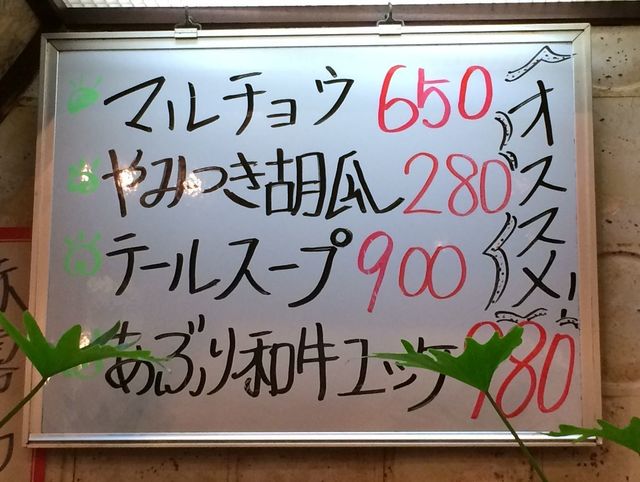 オススメ!
マルチョウ 650
やみつき胡瓜 280
テールスープ 900
あぶり和牛ユッケ 980